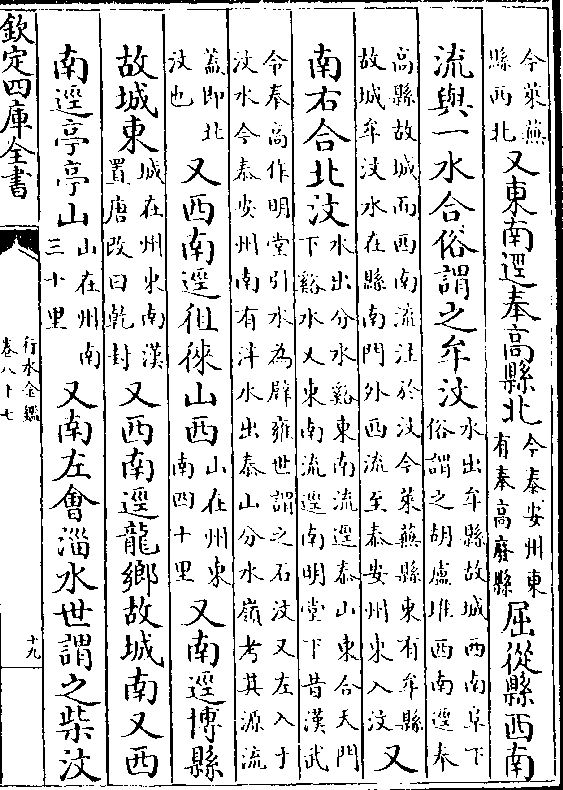 今萊蕪縣西北又東南逕奉高縣北今泰安州東有奉高廢縣屈從縣西南
流與一水合俗謂之牟汶水出牟縣故城西南阜下俗謂之胡盧堆西南逕奉
高縣故城而西南流注於汶今萊蕪縣東有牟縣故城牟汶水在縣南門外西流至泰安州東入汶又
南右合北汶水出分水谿東南流逕泰山東合天門下谿水又東南流逕南明堂下昔漢武
令奉高作明堂引水為辟雍世謂之石汶又左入于汶水今泰安州南有泮水出泰山分水嶺考其源流
蓋即北汶也又西南逕徂徠山西山在州東南四十里又南逕博縣
故城東城在州東南漢置唐改曰乾封又西南逕龍鄉故城南又西
南逕亭亭山山在州南三十里又南左會淄水世謂之柴汶
欽定四庫全書
行水金鑑
卷八十七
十九